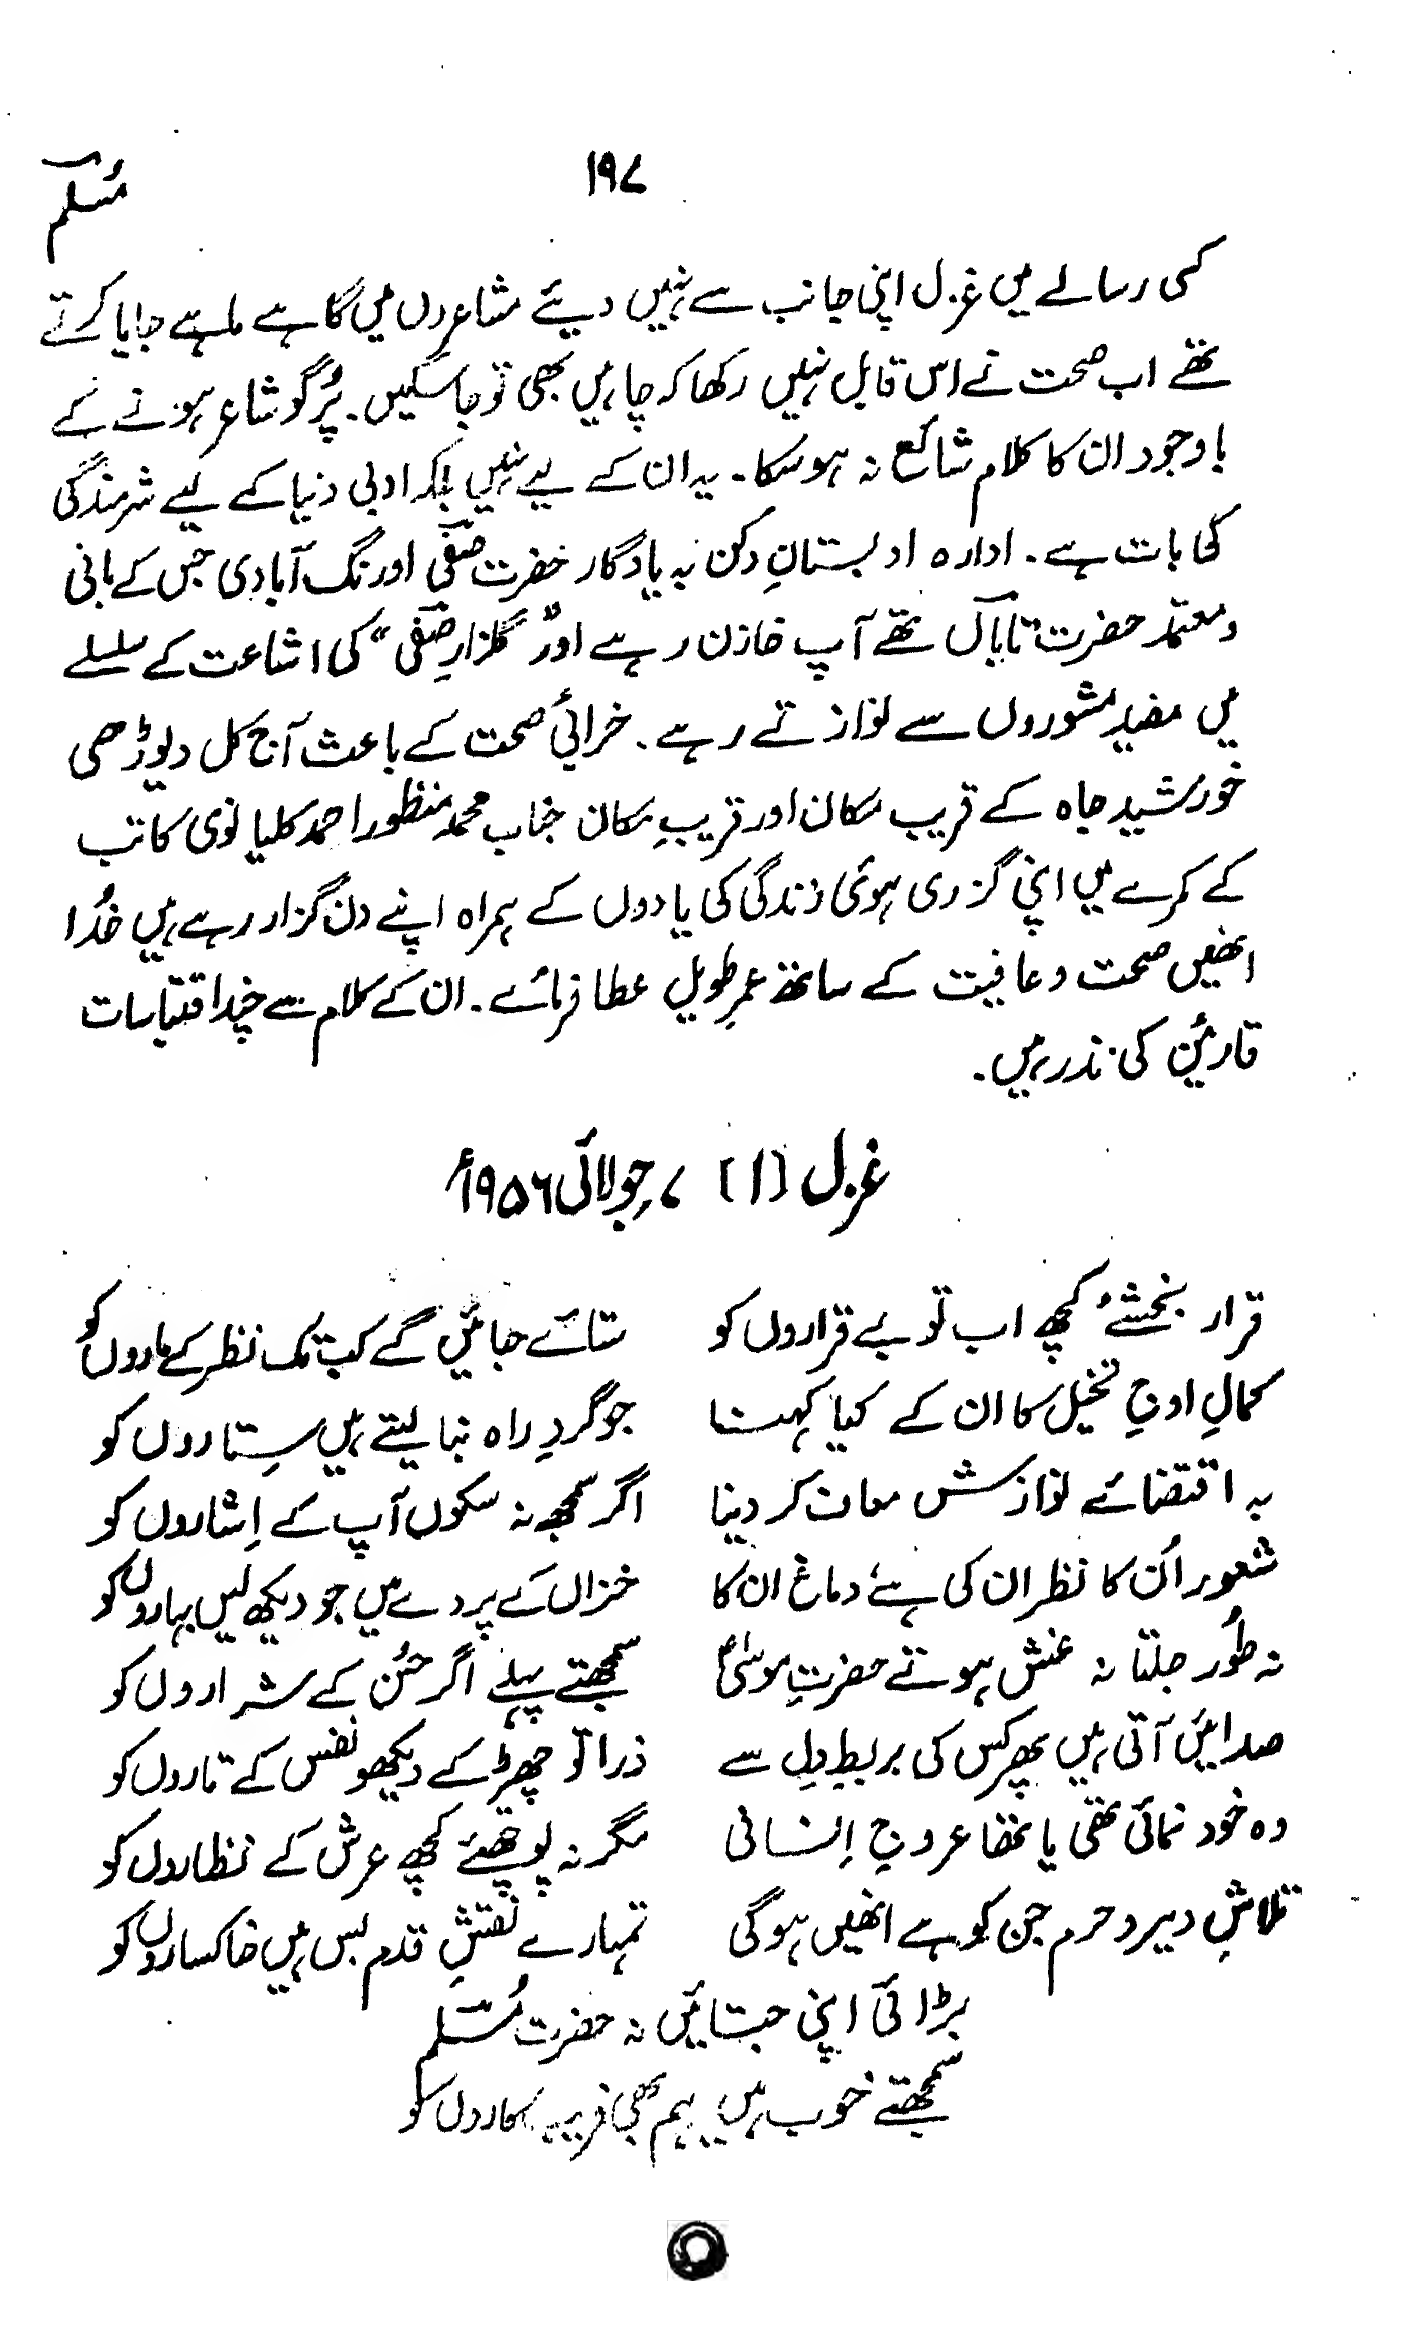 ۱۹۷
مُسلم
کسی رسالے میں غزل اپنی جانب سے نہیں دیئے مشاعروں میں گاہے ماہے جایا کرتے
تھے اب صحت نے اس قابل نہیں رکھا کہ چاہیں بھی تو جا سکیں۔ پُرگو شاعر ہونے کے
باوجود ان کا کلام شائع نہ ہو سکا۔ یہ ان کے لیے نہیں بلکہ ادبی دنیا کے لیے شرمندگی
کی بات ہے۔ ادارہ ادبستانِ دکن بہ یادگار حضرت صفیؔ اورنگ آبادی جس کے بانی
و معتمد حضرت تاباںؔ تھے آپ خازن رہے اور "گلزارِ صفیؔ" کی اشاعت کے سلسلے
میں مفید مشوروں سے نوازتے رہے۔ خرابیٔ صحت کے باعث آج کل دیوڑھی
خورشید جاہ کے قریب مکان اور قریبِ مکان جناب محمد منظور احمد کلیانوی کاتب
کے کمرے میں اپنی گزری ہوئی زندگی کی یادوں کے ہمراہ اپنے دن گزار رہے ہیں خُدا
انھیں صحت و عافیت کے ساتھ عمرِ طویل عطا فرمائے۔ ان کے کلام سے چند اقتباسات
قارئین کی نذر ہیں۔
غزل (۱) ۷؍جولائی ۱۹۵۶ء
قرار بخشئے کچھ اب تو بے قراروں کو ستائے جائیں گے کب تک نظر کے ماروں کو
کمالِ اوجِ تخیل کا ان کے کیا کہنا جو گردِ راہ بنا لیتے ہیں سِتاروں کو
بہ اقتضائے نوازش معاف کر دینا اگر سمجھ نہ سکوں آپ کے اِشاروں کو
شعور اُن کا نظر ان کی ہے دماغ ان کا خزاں کے پردے میں جو دیکھ لیں بہاروں کو
نہ طُور جلتا نہ غش ہوتے حضرتِ موسیٰؑ سمجھتے پہلے اگر حسُن کے شراروں کو
صدائیں آتی ہیں پھر کس کی بربطِ دل سے ذرا تو چھیڑ کے دیکھو نفس کے تاروں کو
وہ خود نمائی تھی یا تھا عروجِ اِنسانی مگر نہ پوچھئے کچھ عرش کے نظاروں کو
تلاشِ دیر و حرم جن کو ہے انھیں ہوگی تمہارے نقشِ قدم بس ہیں خاکساروں کو
بڑائی اپنی جتائیں نہ حضرت مُسلمؔ
سمجھتے خوب ہیں ہم بھی فریب کاروں کو